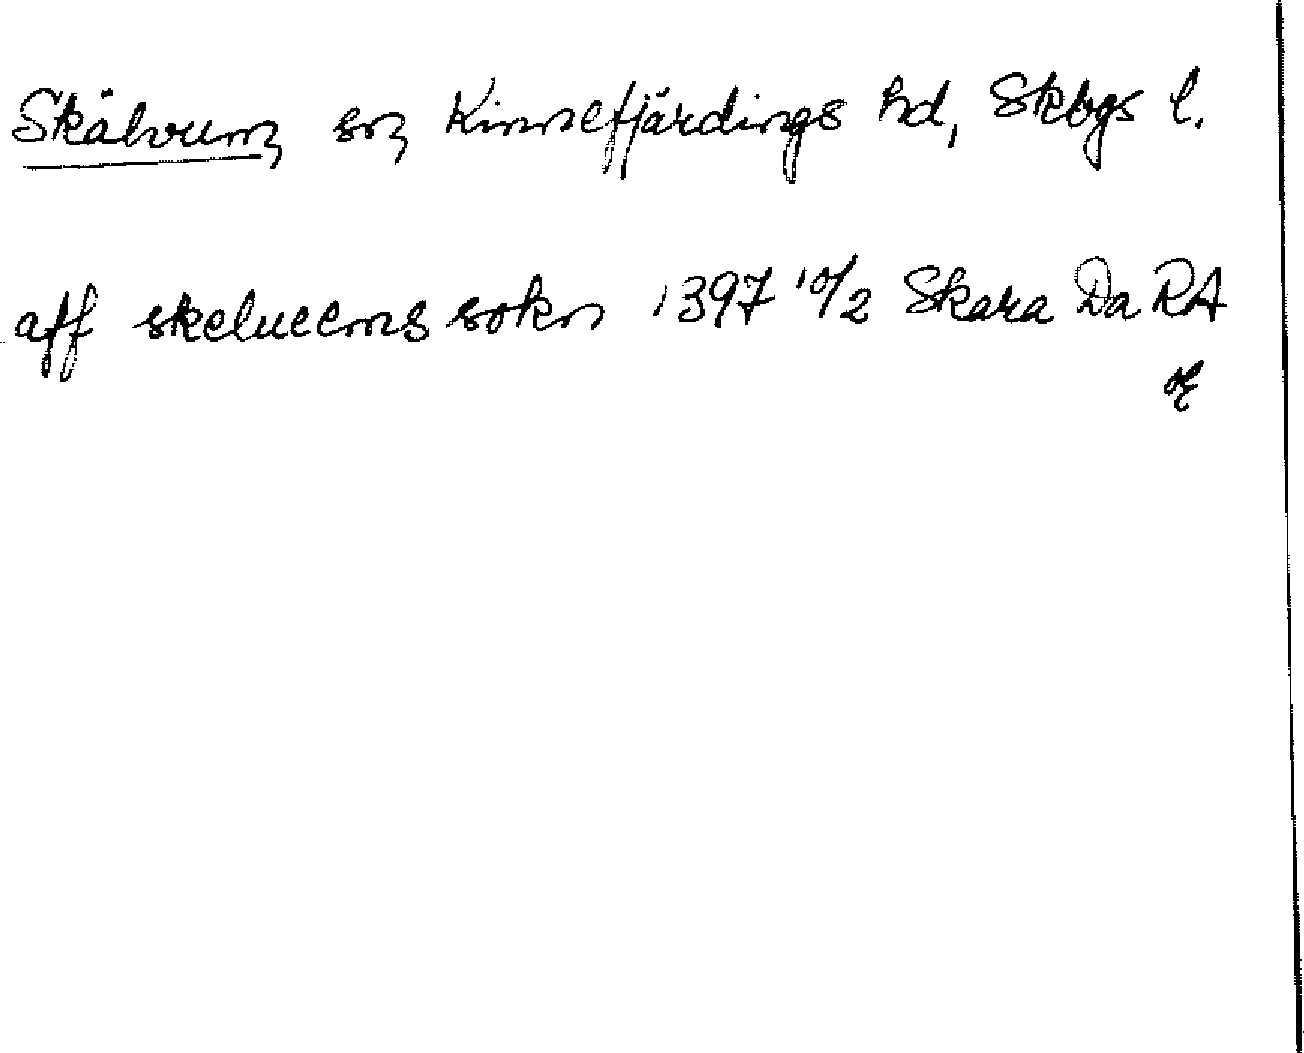 Skälvum sn, Kinnefjärdings hd, Skbgs l.
aff skelueems sokn 1397 10/2 Skara Da RA